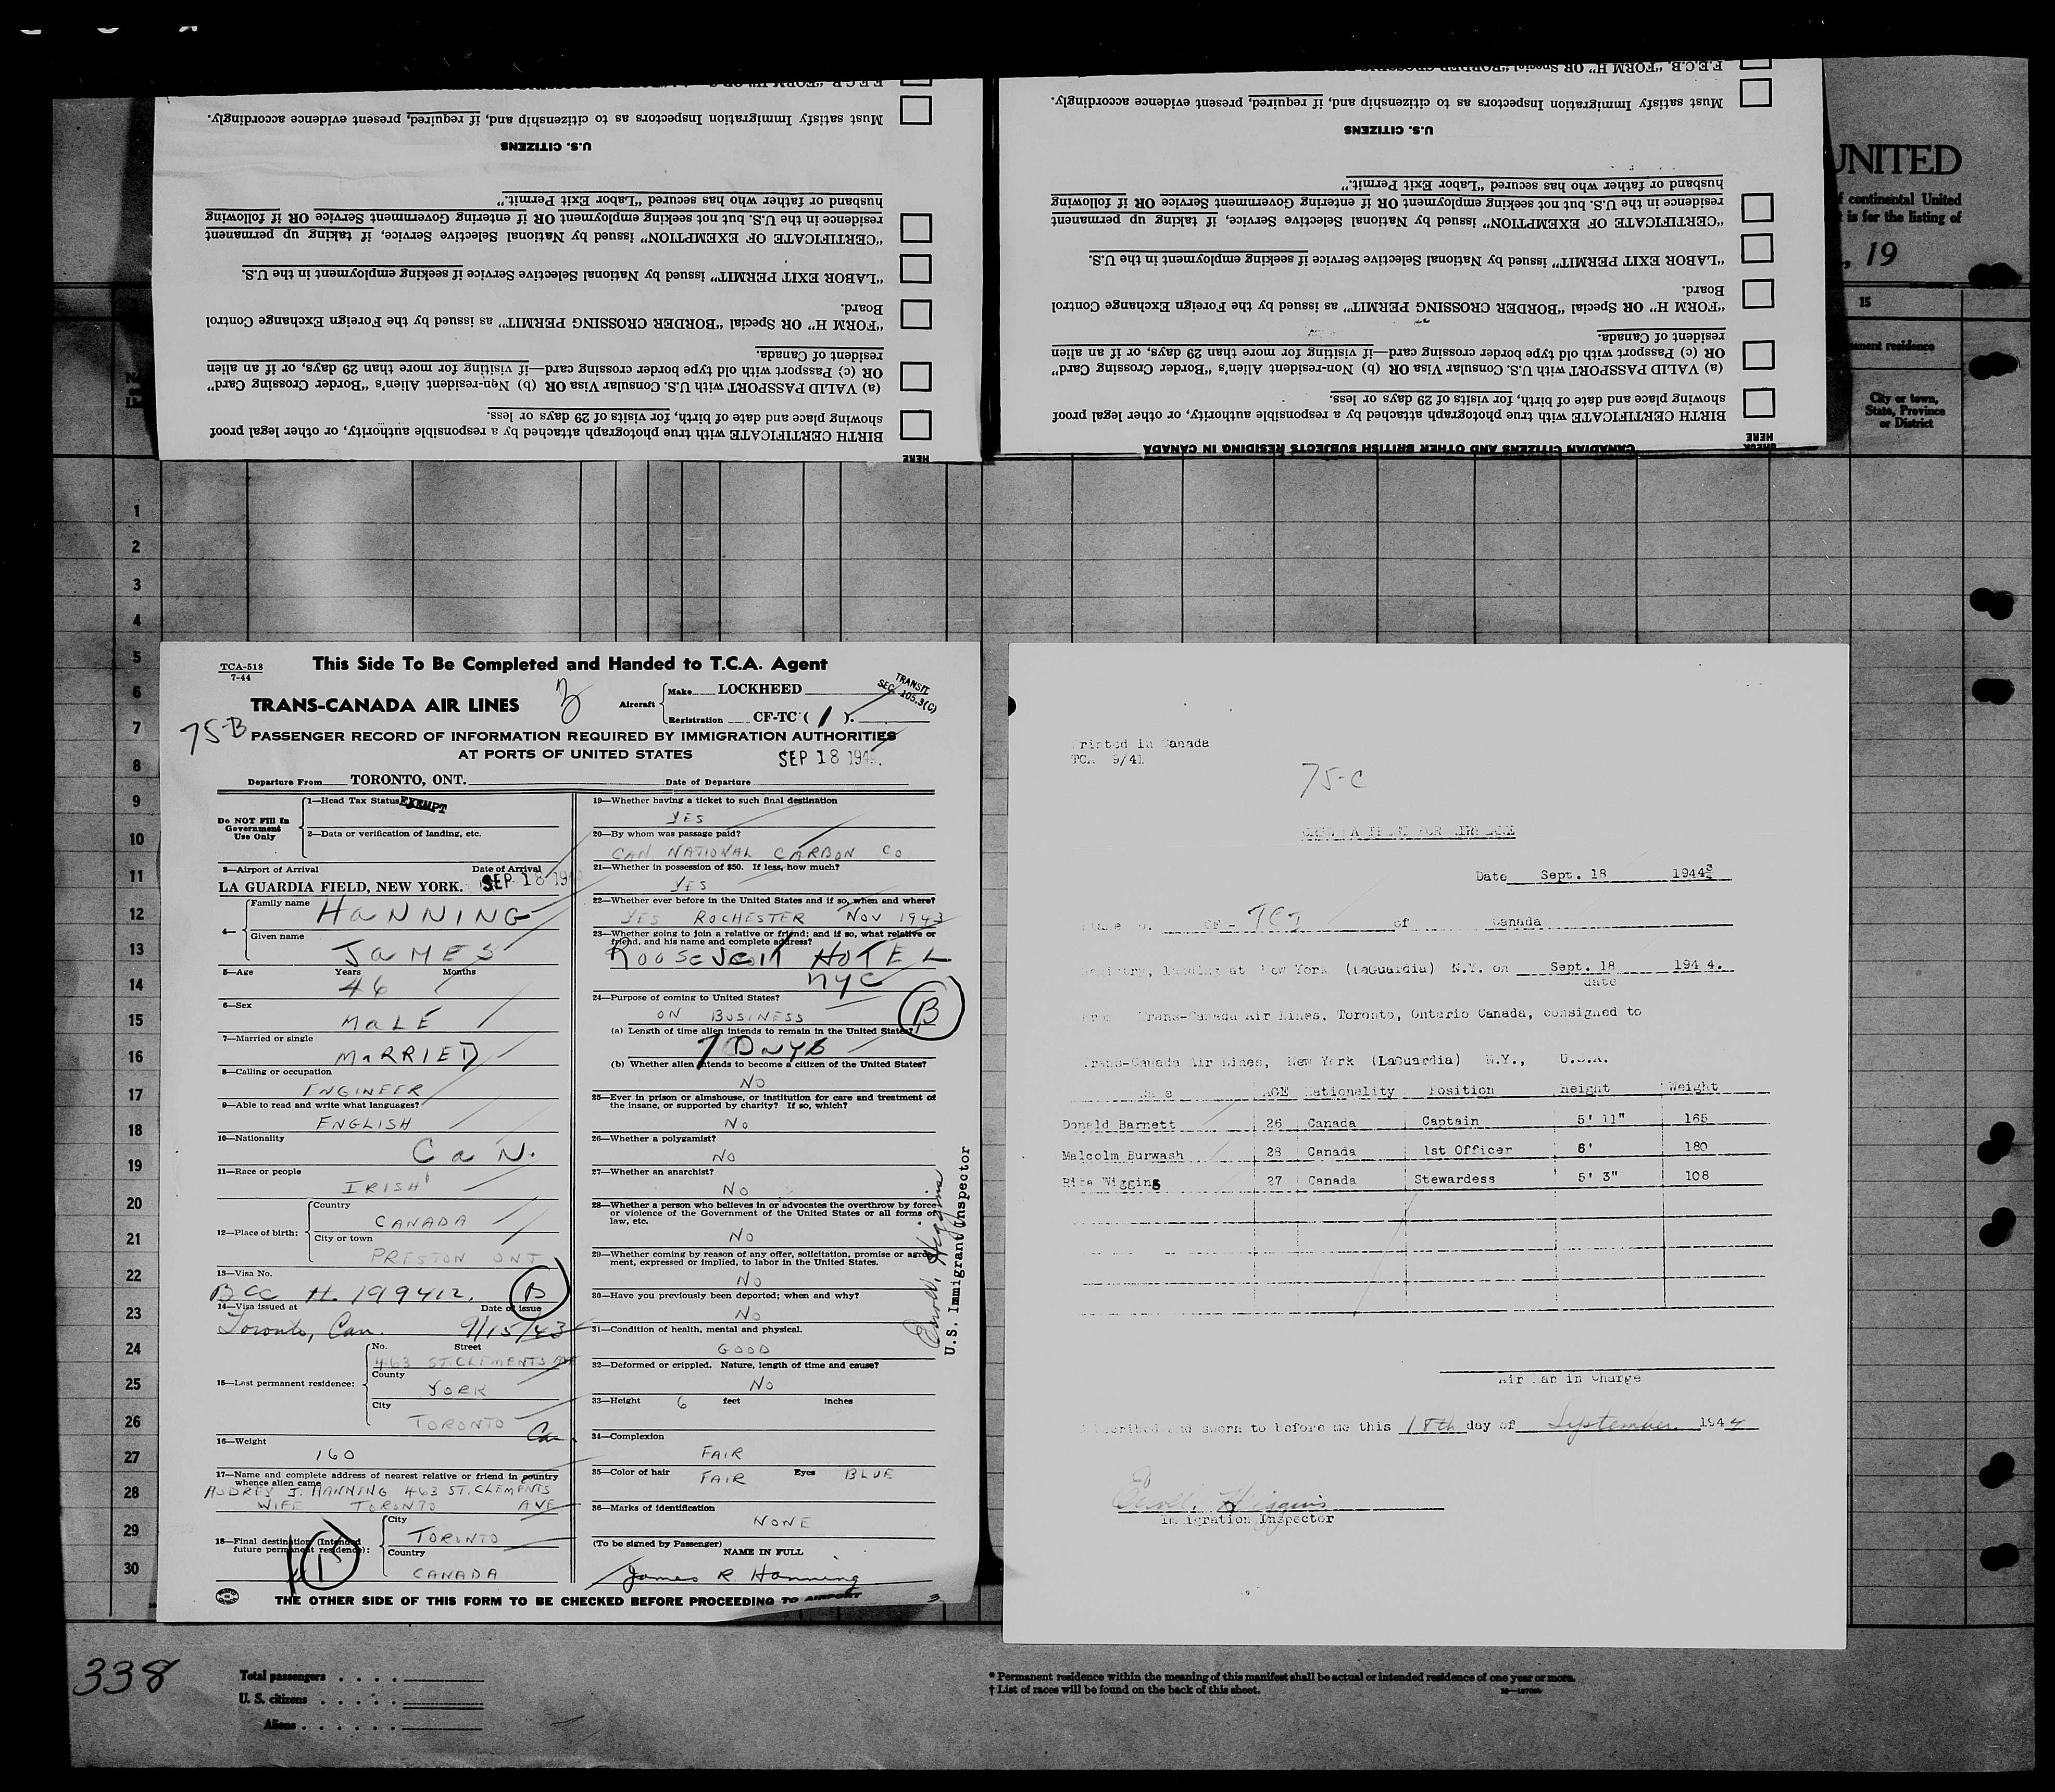 F.E.C.B. "FORM H" OR Special "BORDER CROSSING
Must satisfy Immigration Inspectors as to citizenship and, if required, present evidence accordingly.
U.S. CITIZENS
husband or father who has secured "Labor Exit Permit."
residence in the U.S. but not seeking employment OR if entering Government Service OR if following
"CERTIFICATE OF EXEMPTION" issued by National Selective Service, if taking up permanent
"LABOR EXIT PERMIT" issued by National Selective Service if seeking employment in the U.S.
Board.
"FORM H" OR Special "BORDER CROSSING PERMIT" as issued by the Foreign Exchange Control
resident of Canada.
OR (c) Passport with old type border crossing card—if visiting for more than 29 days, or if an alien
(a) VALID PASSPORT with U.S. Consular Visa OR (b) Non-resident Alien's "Border Crossing Card"
showing place and date of birth, for visits of 29 days or less.
BIRTH CERTIFICATE with true photograph attached by a responsible authority, or other legal proof
HERE
F.E.C.B. "FORM H" OR Special "BORDER CROSSING
Must satisfy Immigration Inspectors as to citizenship and, if required, present evidence accordingly.
U.S. CITIZENS
husband or father who has secured "Labor Exit Permit."
residence in the U.S. but not seeking employment OR if entering Government Service OR if following
"CERTIFICATE OF EXEMPTION" issued by National Selective Service, if taking up permanent
"LABOR EXIT PERMIT" issued by National Selective Service if seeking employment in the U.S.
Board.
"FORM H" OR Special "BORDER CROSSING PERMIT" as issued by the Foreign Exchange Control
resident of Canada.
OR (c) Passport with old type border crossing card—if visiting for more than 29 days, or if an alien
(a) VALID PASSPORT with U.S. Consular Visa OR (b) Non-resident Alien's "Border Crossing Card"
showing place and date of birth, for visits of 29 days or less.
BIRTH CERTIFICATE with true photograph attached by a responsible authority, or other legal proof
CHECK HERE
CANADIAN CITIZENS AND OTHER BRITISH SUBJECTS RESIDING IN CANADA
UNITED
f continental United
t is for the listing of
, 19
15
anent residence
City or town,
State, Province
or District
1
2
3
4
5
6
7
8
9
10
11
12
13
14
15
16
17
18
19
20
21
22
23
24
25
26
27
28
29
30
TCA-518
7-44
This Side To Be Completed and Handed to T.C.A. Agent
TRANS-CANADA AIR LINES
3
Aircraft
Make LOCKHEED
Registration CF-TC ( 1 ).
TRANSIT
SEC. 105.3(C)
75-B
PASSENGER RECORD OF INFORMATION REQUIRED BY IMMIGRATION AUTHORITIES
AT PORTS OF UNITED STATES
SEP 18 194
Departure From TORONTO, ONT. Date of Departure
Do NOT Fill In
Government
Use Only
1—Head Tax Status EXEMPT
2—Data or verification of landing, etc.
3—Airport of Arrival Date of Arrival
LA GUARDIA FIELD, NEW YORK. SEP 18 194
4—
Family name HANNING
Given name JAMES
5—Age Years Months
46
6—Sex
MALE
7—Married or single
MARRIED
8—Calling or occupation
ENGINEER
9—Able to read and write what languages?
ENGLISH
10—Nationality
CAN.
11—Race or people
IRISH
12—Place of birth:
Country
CANADA
City or town
PRESTON ONT
13—Visa No.
BCC H. 199412. B
14—Visa issued at Date of issue
Toronto, Can. 9/15/43
15—Last permanent residence:
No. Street
463 ST. CLEMENTS AVE
County
YORK
City
TORONTO
Can
16—Weight
160
17—Name and complete address of nearest relative or friend in country
whence alien came
AUDREY J. HANNING 463 ST. CLEMENTS
WIFE TORONTO AVE
18—Final destination (Intended
future permanent residence):
City
TORONTO
Country
CANADA
19—Whether having a ticket to such final destination
YES
20—By whom was passage paid?
CAN NATIONAL CARBON CO
21—Whether in possession of $50. If less, how much?
YES
22—Whether ever before in the United States and if so, when and where?
YES ROCHESTER NOV 1943
23—Whether going to join a relative or friend; and if so, what relative or
friend, and his name and complete address?
Roosevelt HOTEL
NYC
24—Purpose of coming to United States?
ON BUSINESS
B
(a) Length of time alien intends to remain in the United States?
7 DAYS
(b) Whether alien intends to become a citizen of the United States?
NO
25—Ever in prison or almshouse, or institution for care and treatment of
the insane, or supported by charity? If so, which?
No
26—Whether a polygamist?
NO
27—Whether an anarchist?
NO
28—Whether a person who believes in or advocates the overthrow by force
or violence of the Government of the United States or all forms of
law, etc.
NO
29—Whether coming by reason of any offer, solicitation, promise or agree-
ment, expressed or implied, to labor in the United States.
NO
30—Have you previously been deported; when and why?
NO
31—Condition of health, mental and physical.
GOOD
32—Deformed or crippled. Nature, length of time and cause?
NO
33—Height 6 feet inches
34—Complexion
FAIR
35—Color of hair FAIR Eyes BLUE
36—Marks of identification
NONE
(To be signed by Passenger)
NAME IN FULL
James R. Hanning
Higgins
U.S. Immigrant Inspector
THE OTHER SIDE OF THIS FORM TO BE CHECKED BEFORE PROCEEDING TO AIRPORT
3
Printed in Canada
TCA 9/41
75-C
FOR AIRPLANE
Date Sept. 18 1944
CF - TCJ of Canada
Registry, landing at New York (LaGuardia) N.Y. on Sept. 18 1944.
date
From Trans-Canada Air Lines, Toronto, Ontario Canada, consigned to
Trans-Canada Air Lines, New York (LaGuardia) N.Y., U.S.A.
Name AGE Nationality Position Height Weight
Donald Barnett 26 Canada Captain 5' 11" 165
Malcolm Burwash 28 Canada 1st Officer 6' 180
Rita Wiggins 27 Canada Stewardess 5' 3" 108
Air Man in Charge
Subscribed and sworn to before me this 18th day of September 1944
Higgins
Immigration Inspector
338
Total passengers
U. S. citizens
Aliens
* Permanent residence within the meaning of this manifest shall be actual or intended residence of one year or more.
† List of races will be found on the back of this sheet.